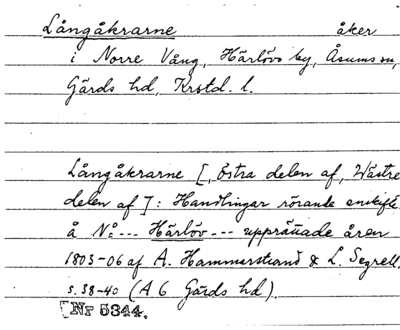 Långåkrarne åker
i Norre Vång, Härlövs by, Åsums sn,
Gärds hd, Krstd. l.
Långåkrarne [, östra delen af, Wästre
delen af]: Handlingar rörande enskifte
å N:o --- Härlöv --- upprättade åren
1803-06 af A. Hammarstrand & L. Segrell.
s. 38-40 (A 6 Gärds hd).
[Nr 5344.